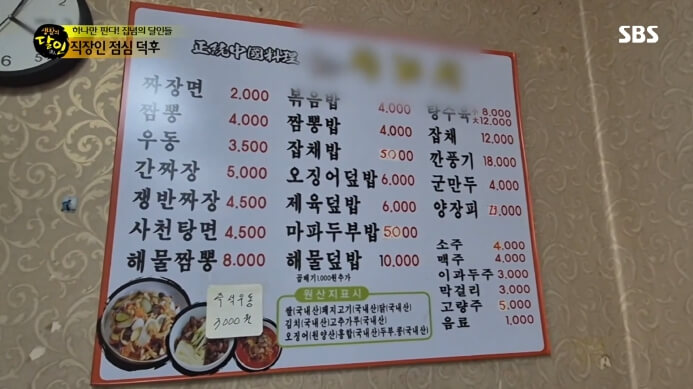 생활의
달인
하나만 판다! 집념의 달인들
직장인 점심 덕후
SBS
正統中國料理
짜장면 2,000
짬뽕 4,000
우동 3,500
간짜장 5,000
쟁반짜장 4,500
사천탕면 4,500
해물짬뽕 8,000
볶음밥 4,000
짬뽕밥 4,000
잡채밥 5000
오징어덮밥 6,000
제육덮밥 6,000
마파두부밥 5000
해물덮밥 10,000
곱빼기1,000원추가
탕수육 小 8,000
大 12,000
잡채 12,000
깐풍기 18,000
군만두 4,000
양장피 23,000
소주 4,000
맥주 4,000
이과두주 3,000
막걸리 3,000
고량주 5,000
음료 1,000
원산지표시
쌀(국내산)돼지고기(국내산)닭(국내산)
김치(국내산)고추가루(국내산)
오징어(원양산)홍합(국내산)두부.콩(국내산)
3000원